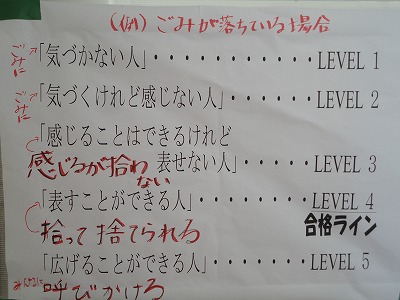 (例) ごみが落ちている場合
ごみに
「気づかない人」・・・・・・・・・・・・LEVEL 1
ごみに
「気づくけれど感じない人」・・・・・・・LEVEL 2
「感じることはできるけれど
表せない人」・・・・LEVEL 3
感じるが拾わない
「表すことができる人」・・・・・・・・LEVEL 4
拾って捨てられる
合格ライン
「広げることができる人」・・・・・・・LEVEL 5
みんなに
呼びかける